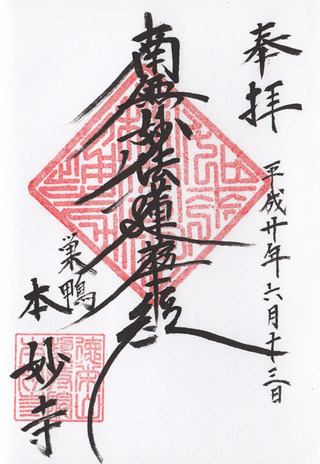 奉拝
平成廿年六月十三日
南無妙法蓮華経
巣鴨
本妙寺